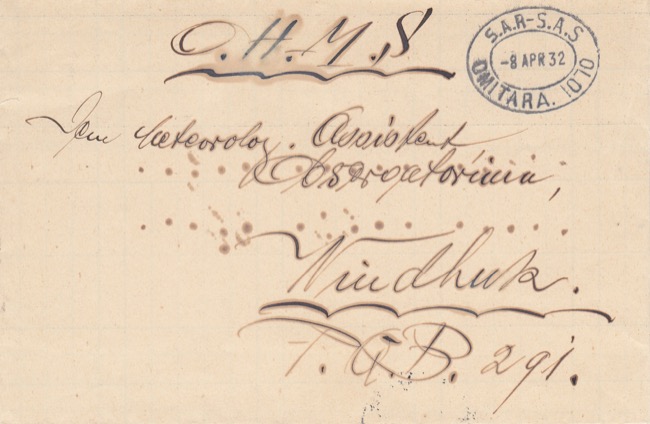 O.H.M.S
S.A.R-S.A.S
-8 APR 32
OMITARA. 1070
Dem Meteorolog. Assistent,
Observatorium,
Windhuk.
P.O.B. 291.